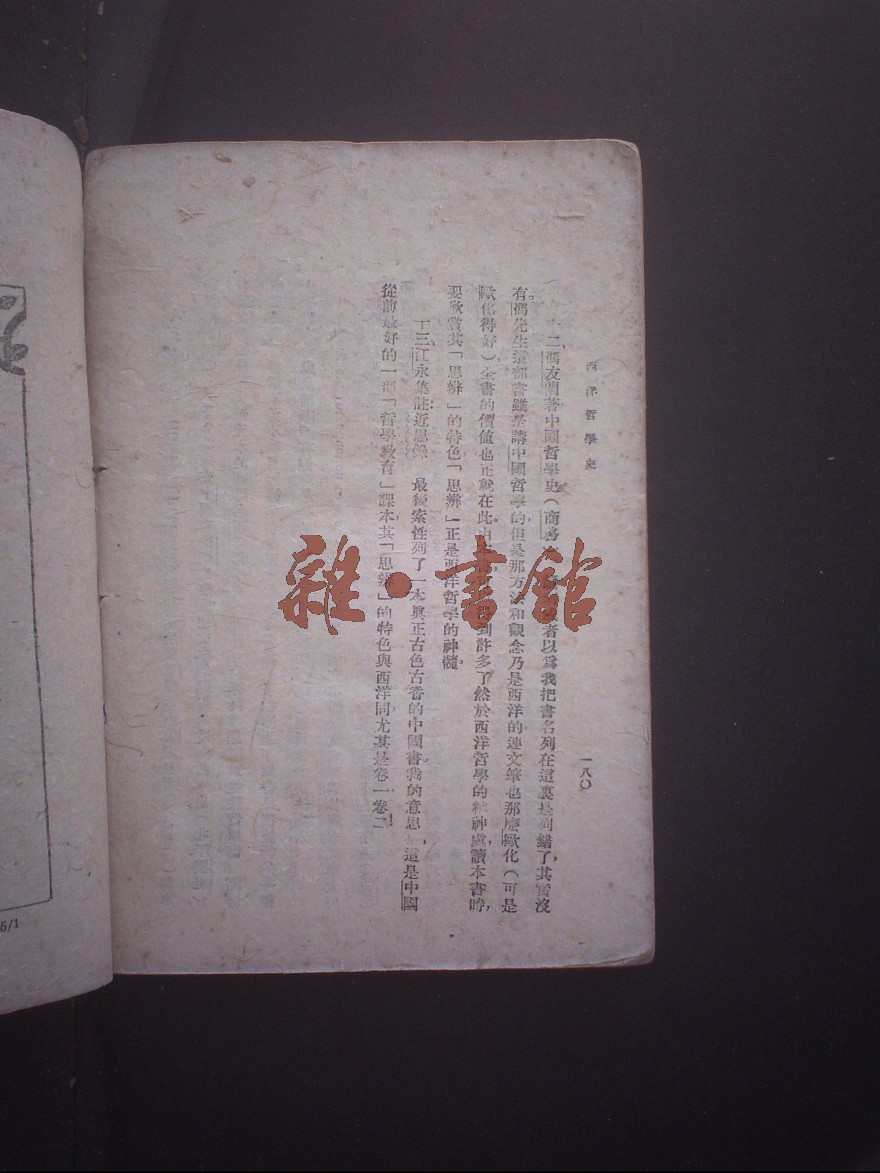 西洋哲學史
一八〇
十二、馮友蘭著中國哲學史(商務 者以爲我把書名列在這裏是列錯了，其實沒
有。馮先生這部書雖是講中國哲學的，但是那方法和觀念乃是西洋的，連文筆也那麼歐化(可是
歐化得好)全書的價値也正就在此。由 得到許多了然於西洋哲學的精神處，讀本書時，
要欣賞其「思辨」的特色，「思辨」正是西洋哲學的神髓。
十三、江永集註近思錄 最後索性列了一本眞正古色古香的中國書。我的意思，這是中國
從前最好的一部「哲學敎育」課本，其「思辨」的特色與西洋同，尤其是卷一卷二！
雜·書館
6/1